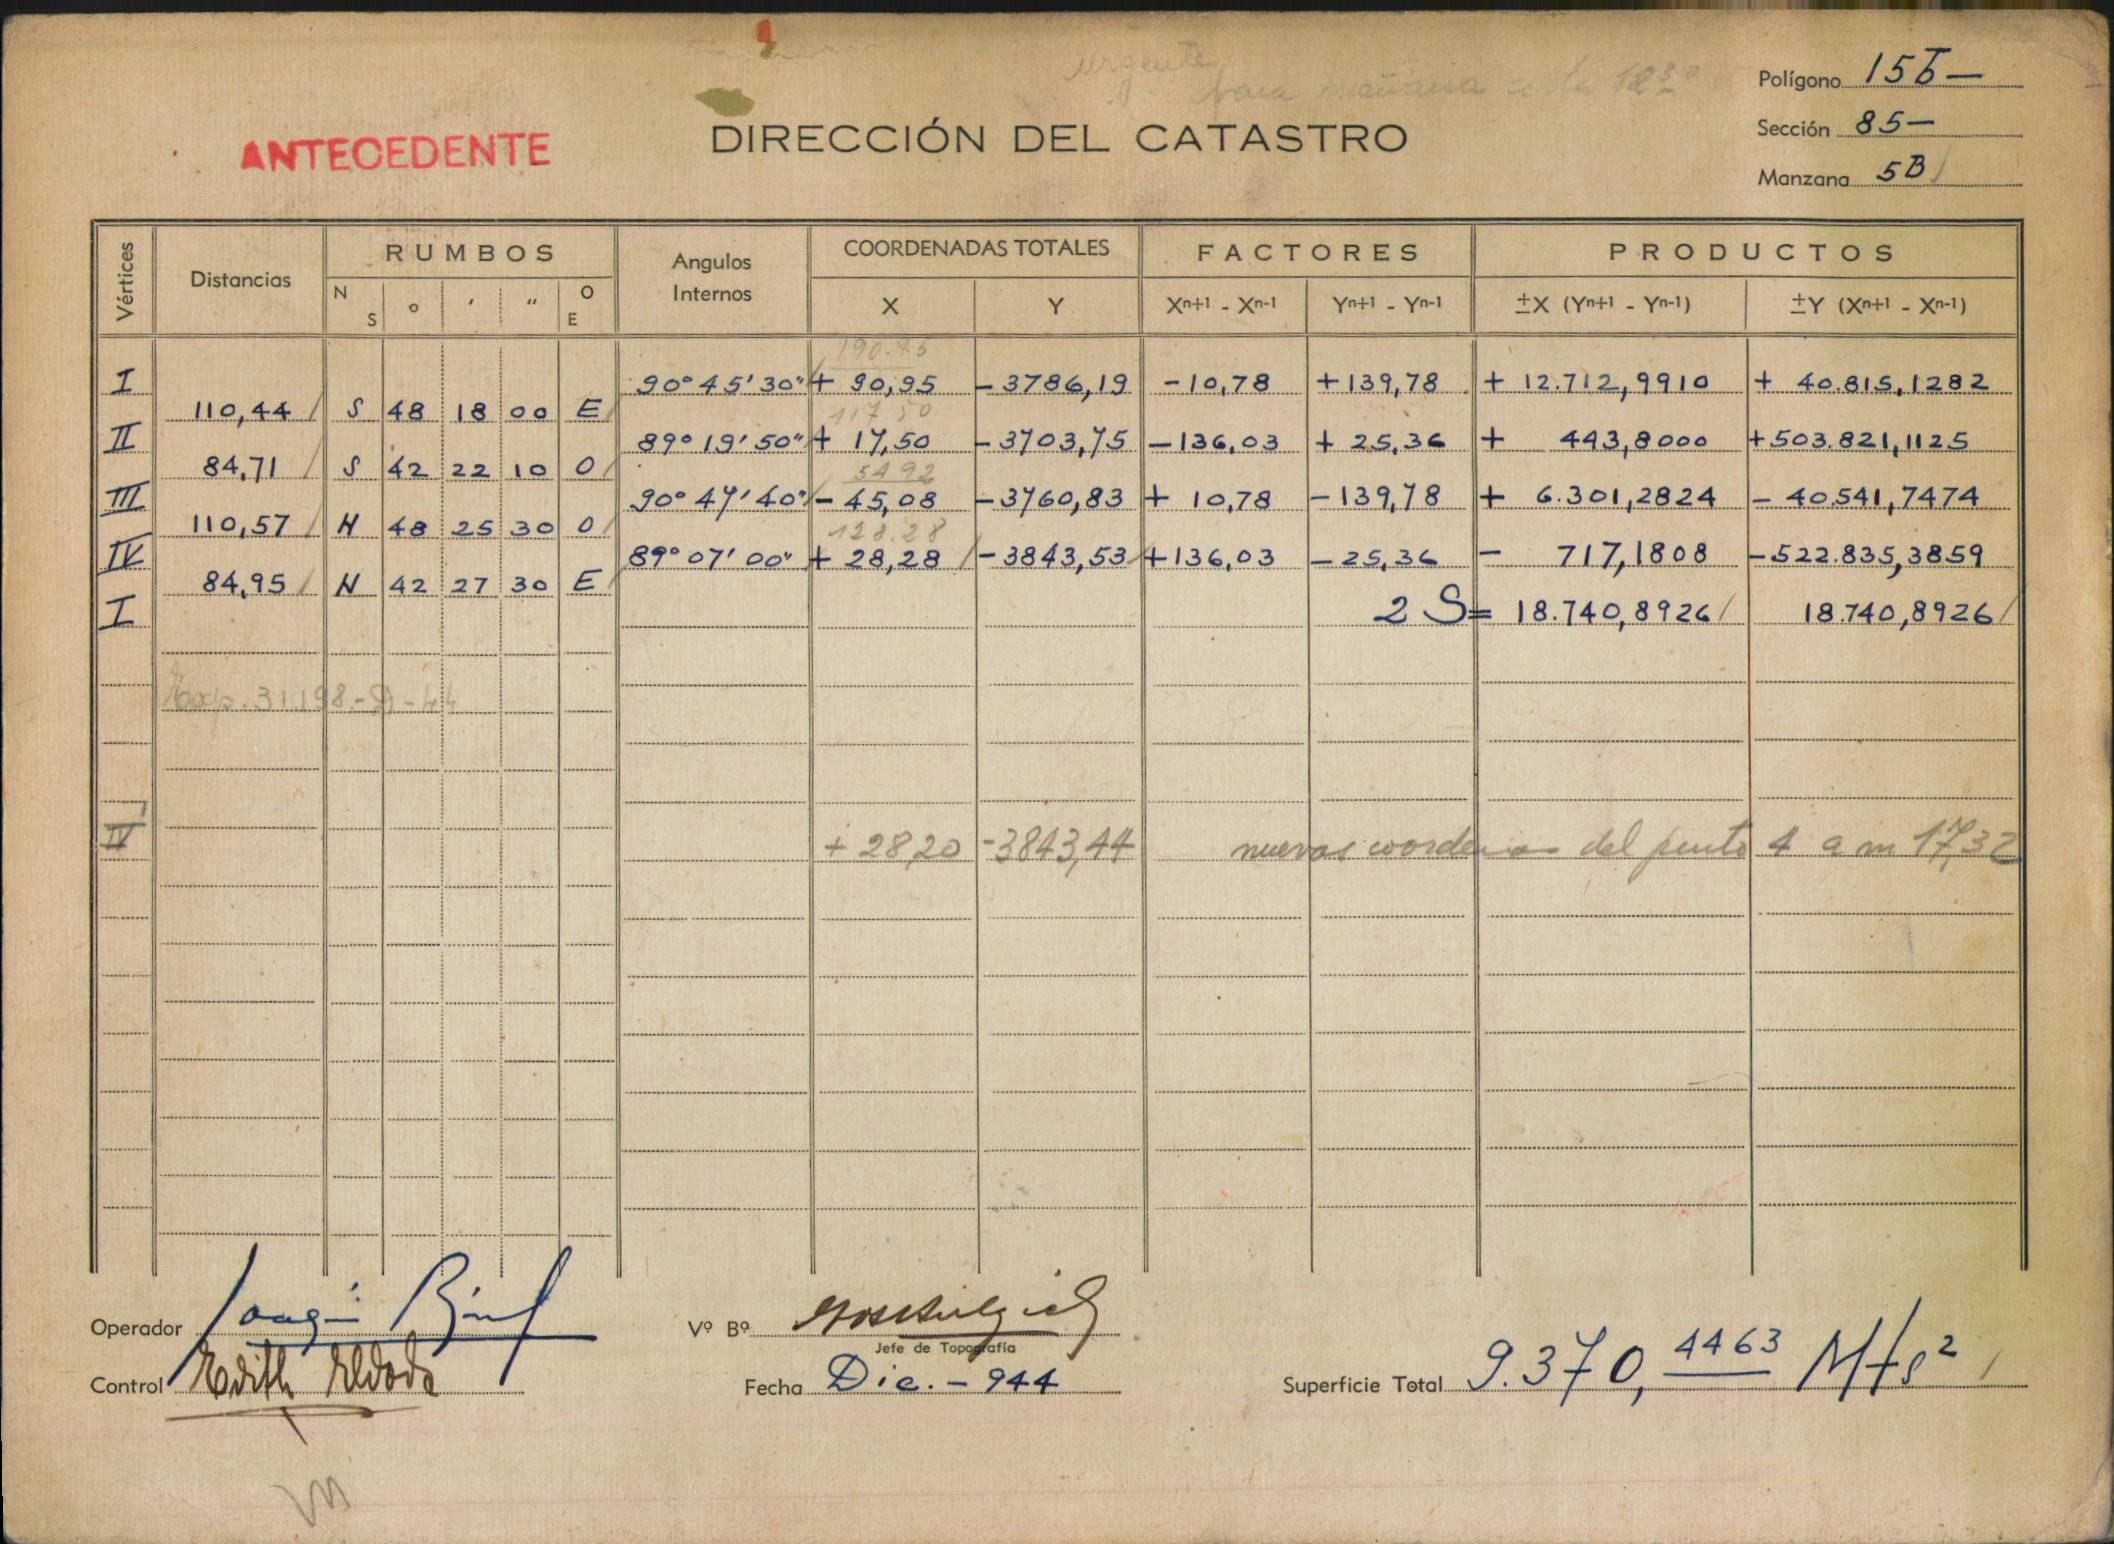 urgente
para mañana a la 12
Polígono 15b—
ANTECEDENTE
DIRECCIÓN DEL CATASTRO
Sección 85—
Manzana 5B
Vértices Distancias RUMBOS Angulos Internos COORDENADAS TOTALES FACTORES PRODUCTOS
N S ° ′ ″ O E X Y Xn+1 - Xn-1 Yn+1 - Yn-1 ±X (Yn+1 - Yn-1) ±Y (Xn+1 - Xn-1)
190.95
I 90° 45' 30" + 90,95 - 3786,19 -10,78 +139,78 + 12.712,9910 + 40.815,1282
110,44 S 48 18 00 E 117 50
II 89° 19' 50" + 17,50 - 3703,75 -136,03 + 25,36 + 443,8000 +503.821,1125
84,71 S 42 22 10 O 54 92
III 90° 47' 40" - 45,08 -3760,83 + 10,78 -139,78 + 6.301,2824 - 40.541,7474
110,57 N 48 25 30 O 128.28
IV 89° 07' 00" + 28,28 -3843,53 +136,03 -25,36 - 717,1808 -522.835,3859
84,95 N 42 27 30 E
I 2 S= 18.740,8926 18.740,8926
Exp. 31.198.- -44
IV + 28,20 -3843,44 nuevas coordenas del punto 4 a m 17,32
Operador Joaquín
Vº Bº
Jefe de Topografía
Control Edith
Fecha Dic. - 944
Superficie Total 9.370,4463 Mts²